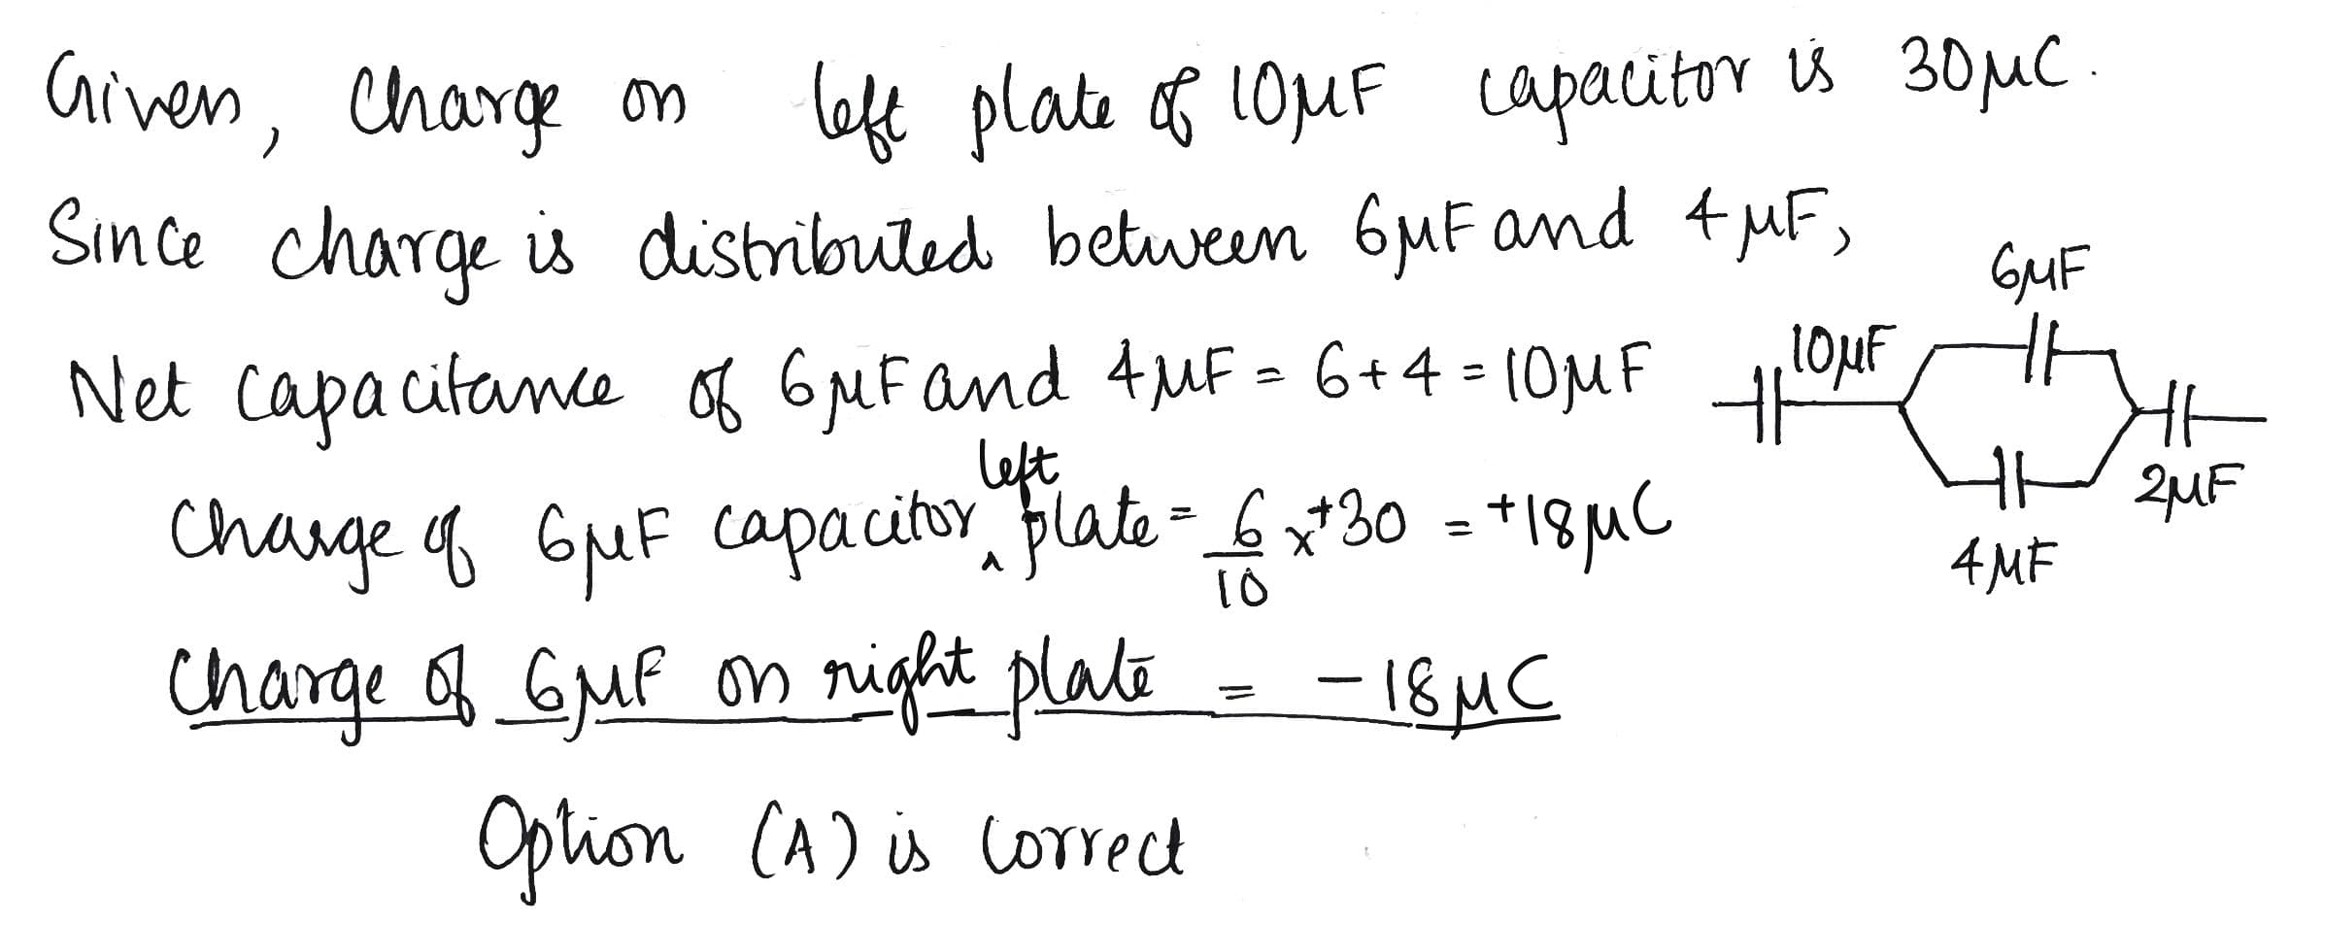 Given, Charge on left plate of 10μF capacitor is 30μC.
Since charge is distributed between 6μF and 4μF,
Net capacitance of 6μF and 4μF = 6+4 = 10μF
Charge of 6μF capacitor left plate = 6/10 x +30 = +18μC
Charge of 6μF on right plate = -18μC
Option (A) is correct
6μF
10μF
2μF
4μF